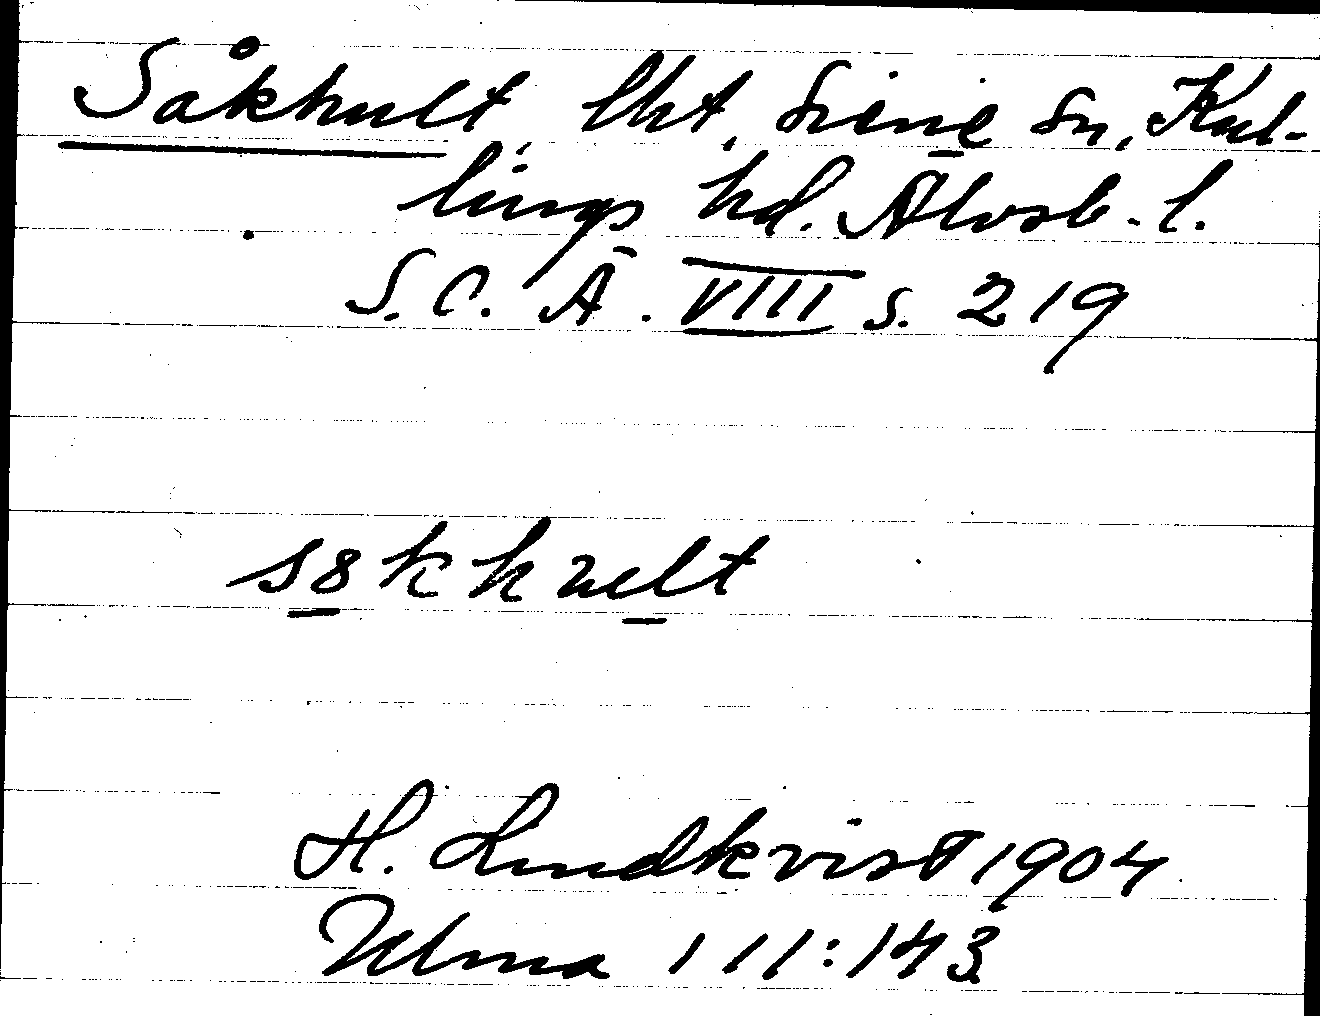 Såkhult, lht, Siene sn, Kul-
lings hd. Älvsb. l.
S.O.Ä. VIII s. 219
s8khult
H. Lindkvist 1904
Ulma 111:143